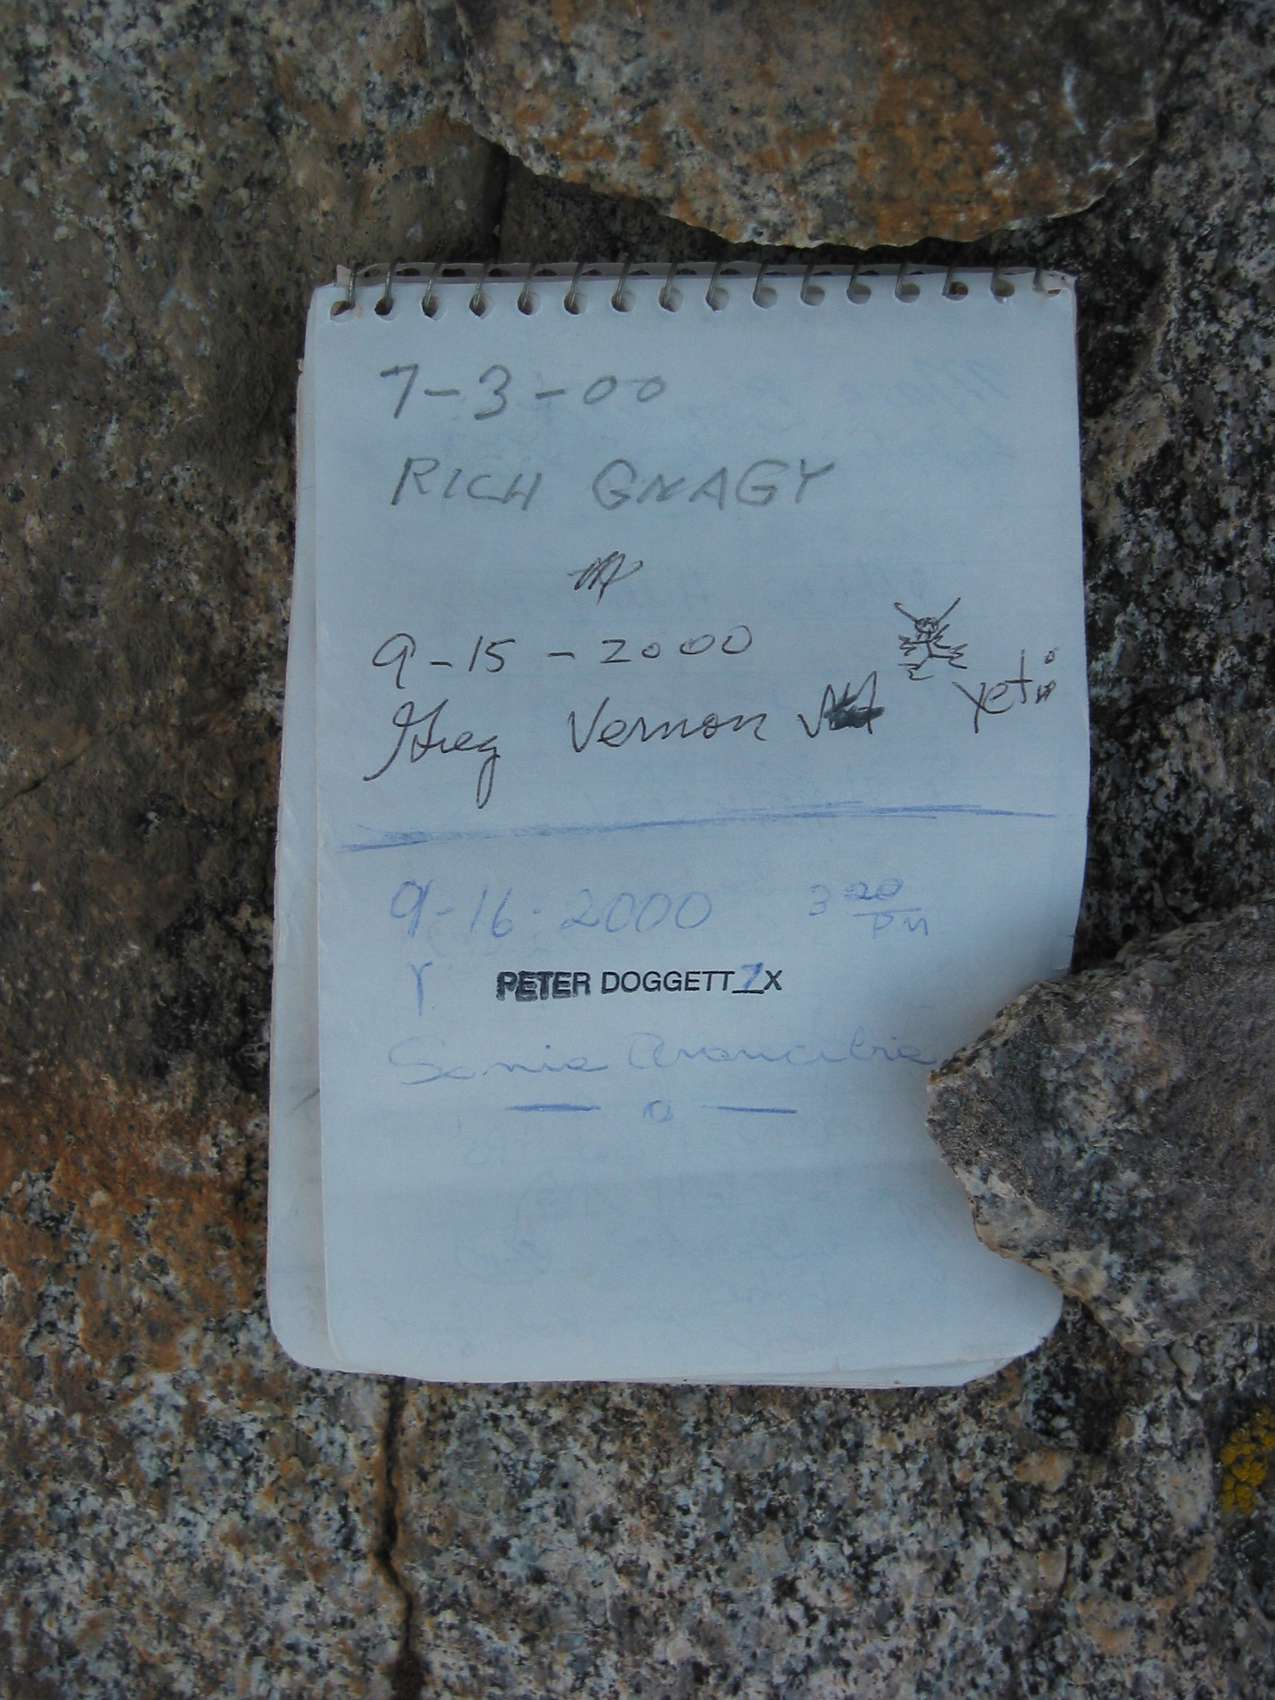 7-3-00
RICH GNAGY
9-15-2000
Greg Vernon yeti
9-16-2000 3 20 PM
PETER DOGGETT 7X
Sonia